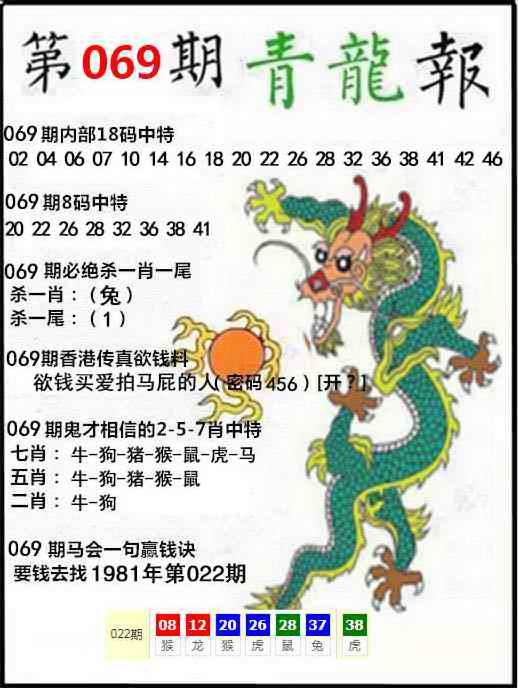 第069期青龍報
069期内部18码中特
02 04 06 07 10 14 16 18 20 22 26 28 32 36 38 41 42 46
069期8码中特
20 22 26 28 32 36 38 41
069 期必绝杀一肖一尾
杀一肖：（兔）
杀一尾：（1）
069期香港传真欲钱料
欲钱买爱拍马屁的人(密码456）[开？]
069期鬼才相信的2-5-7肖中特
七肖：牛-狗-猪-猴-鼠-虎-马
五肖：牛-狗-猪-猴-鼠
二肖：牛-狗
069 期马会一句赢钱诀
要钱去找1981年第022期
022期 08 12 20 26 28 37 38
猴 龙 猴 虎 鼠 兔 虎